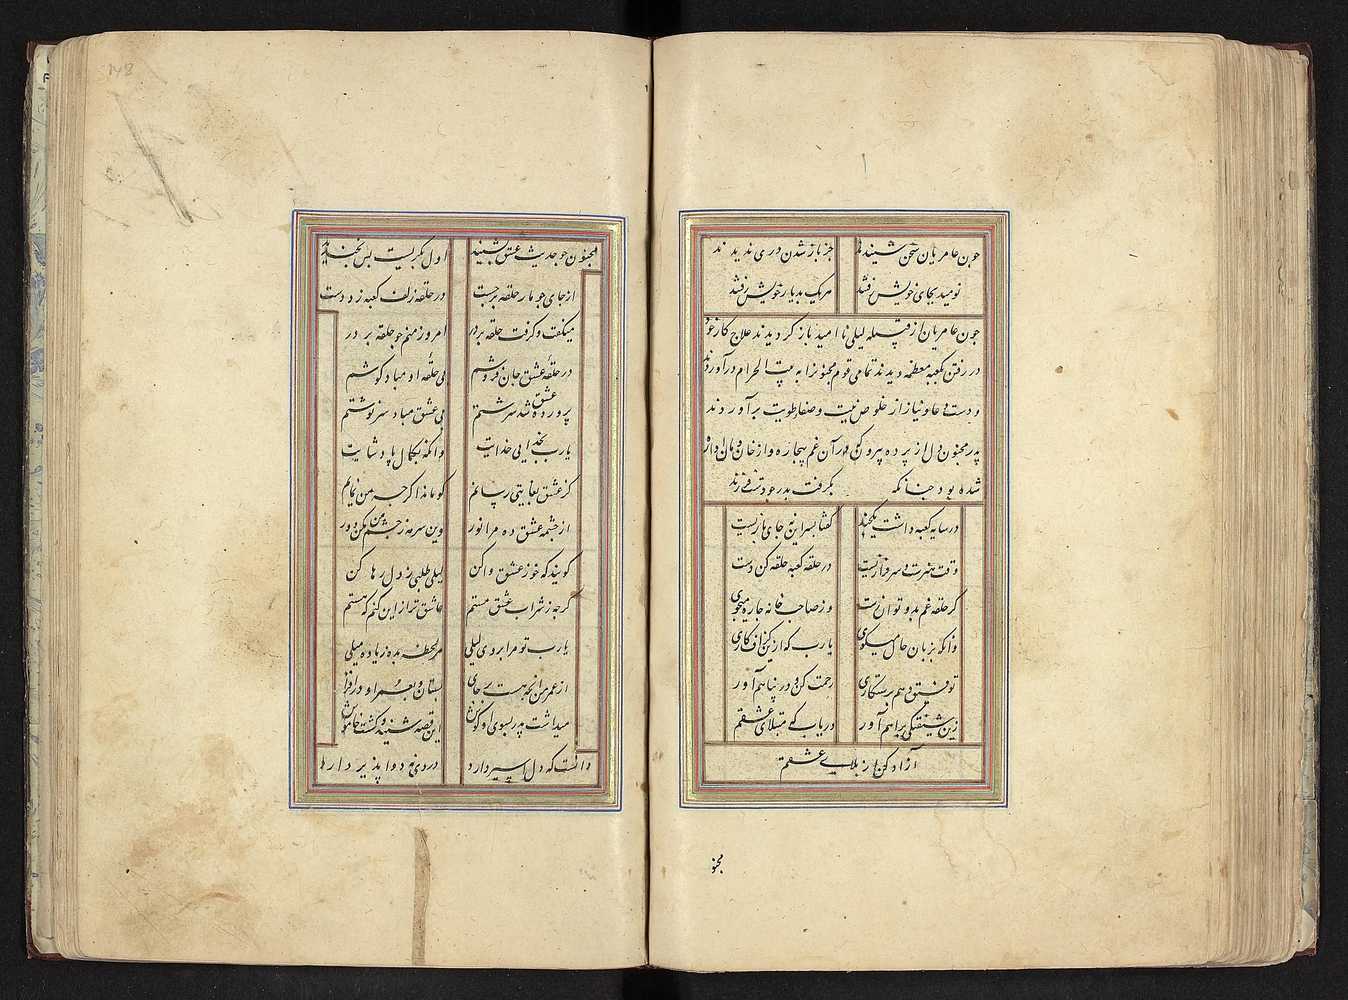 چون عامریان سخن شنیدند جز باز شدن دری ندیدند
نومید بجای خویش رفتند هر یک بدیار خویش رفتند
چون عامریان از قبیله لیلی نا امید باز کردیدند علاج کار خود
در رفتن کعبه معظمه دیدند تمامی قوم مجنون را به بیت الحرام درآوردند
و دست دعا و نیاز از خلوص نیت و صفا طویت برآوردند
پدر مجنون دل از پرده بیرون کن در آن غم بیچاره و از خان و مان آواره
شده بود چنانکه بگرفت پدر چو دست فرزند
در سایه کعبه داشت یکچند گفتا بسر این نه جای بازیست
وقت هنرست و سرفرازیست در حلقه کعبه حلقه کن دست
کز حلقه غم بدو توان رست وز صاحب خانه چاره میجوی
وانکه بزبان حال میکوی یا رب که ازین کزاف کاری
توفیق دهم برستکاری رحمت کن و در پناهم آور
زین شیفتکی براهم آور دریاب که مبتلای عشقم
آزاد کن از بلای عشقم
مجنو
148
مجنون چو حدیث عشق بشنید اول بگریست پس بخندید
از جای چو مار حلقه برجست در حلقه زلف کعبه زد دست
میکفت و گرفت حلقه در بر امروز منم چو حلقه بر در
در حلقهٔ عشق جان فروشم بی حلقهٔ او مباد کوشم
پرورده عشق شد سرشتم بی عشق مباد سرنوشتم
یا رب بخدایی خداییت وانکه بکمال پادشاییت
کز عشق بغایتی رسانم کو ماند اکر چه من نمانم
از چشمه عشق ده مرا نور وین سرمه ز چشم من مکن دور
کویند که خو ز عشق وا کن لیلی طلبی ز دل رها کن
کرچه ز شراب عشق مستم عاشق تر ازین کنم که هستم
یا رب تو مرا بروی لیلی هر لحظه بده زیاده میلی
از عمر من آنچه هست بر جای بستان و بعمر او در افزای
میداشت پدر بسوی او کوش این قصه شنید و کشت خاموش
دانست که دل اسیر دارد دردی نه دوا پذیر دارد